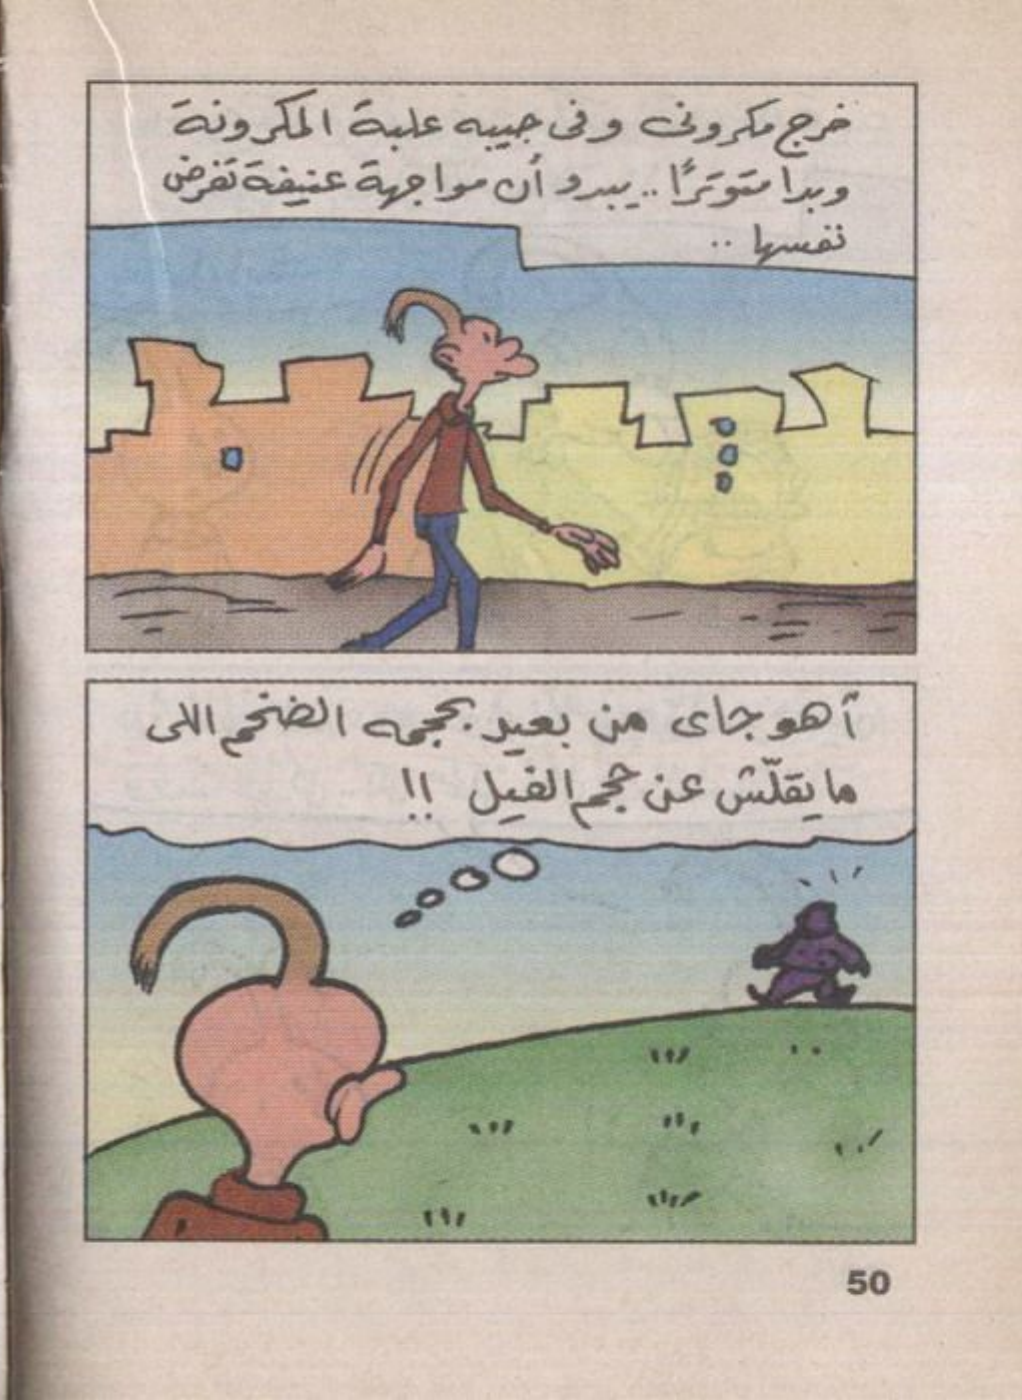 خرج مكرونى وفى جيبه علبة المكرونة
وبدا متوترًا .. يبدو أن مواجهة عنيفة تفرض
نفسها ..
آهو جاى من بعيد بحجمه الضخم اللى
ما يقلّش عن حجم الفيل !!
50